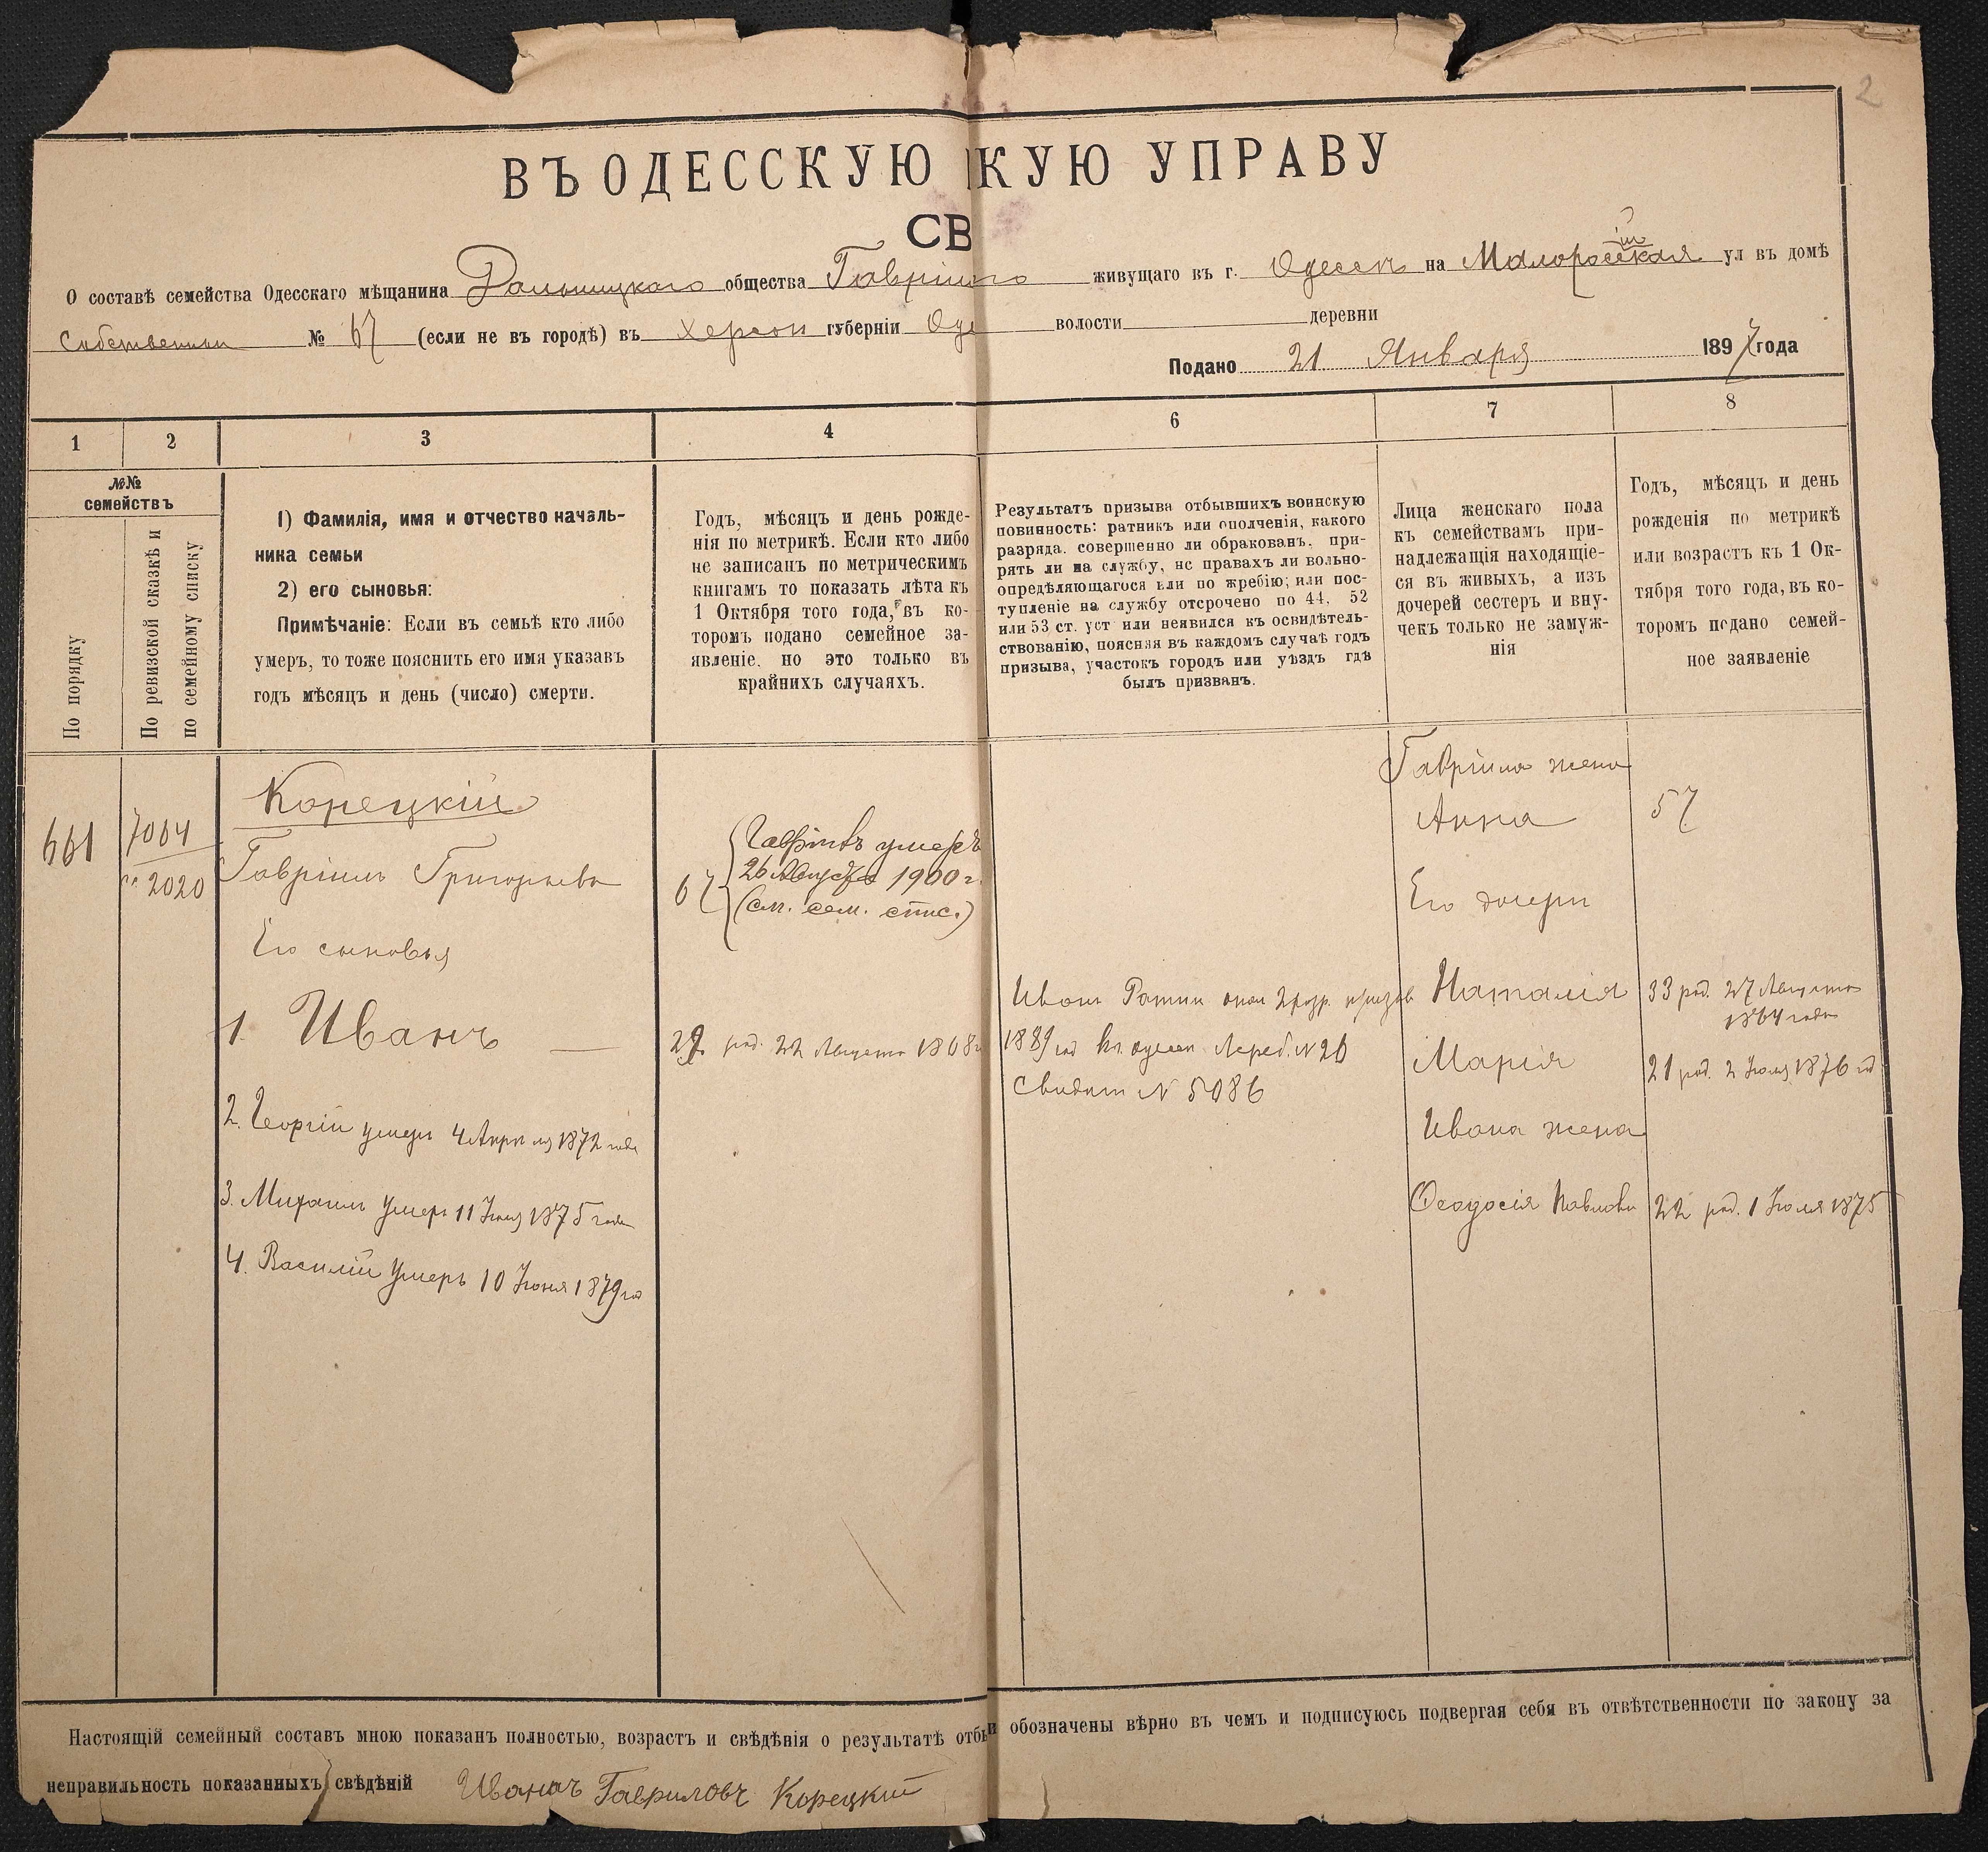 2
ВЪ ОДЕССКУЮ КУЮ УПРАВУ
СВ
О составѣ семейства Одесскаго мѣщанина Дальницкаго общества Гавріила живущаго въ г. Одессѣ на Малоросійская ул въ домѣ
Собственном № 67 (если не въ городѣ) въ Херсон губерніи Оде волости деревни
Подано 21 Января 1897 года
1 2 3 4 6 7 8
№№
семействъ
По порядку
По ревизской сказкѣ и
по семейному списку
1) Фамилія, имя и отчество началь-
ника семьи
2) его сыновья:
Примѣчаніе: Если въ семьѣ кто либо
умеръ, то тоже пояснить его имя указавъ
годъ мѣсяцъ и день (число) смерти.
Годъ, мѣсяцъ и день рожде-
нія по метрикѣ. Если кто либо
не записанъ по метрическимъ
книгамъ то показать лѣта къ
1 Октября того года, въ ко-
торомъ подано семейное за-
явленіе. но это только въ
крайнихъ случаяхъ.
Результатъ призыва отбывшихъ воинскую
повинность: ратникъ или ополченія, какого
разряда. совершенно ли обракованъ. при-
рять ли на службу, нс правахъ ли вольно-
опредѣляющагося или по жребію; или пос-
тупленіе на службу отсрочено по 44. 52
или 53 ст. уст или неявился къ освидѣтель-
ствованію, поясняя въ каждомъ случаѣ годъ
призыва, участокъ городъ или уѣздъ гдѣ
былъ призванъ.
Лица женскаго пола
къ семействамъ при-
надлежащія находящіе-
ся въ живыхъ, а изъ
дочерей сестеръ и вну-
чекъ только не замуж-
нія
Годъ, мѣсяцъ и день
рожденія по метрикѣ
или возрастъ къ 1 Ок-
тября того года, въ ко-
торомъ подано семей-
ное заявленіе
661
7064
2020
Корецкій
Гавріилъ Григорьевъ
Его сыновья
1. Иванъ —
2. Георгій умеръ 4 Апрѣля 1872 года
3. Михаилъ умеръ 11 1875 года
4. Василій умеръ 10 Іюня 1879 год
67
Гавріилъ умеръ
26 Августа 1900 г.
(см. сем. спис.)
29 род. 22 Августа 1868
Иванъ Ратник опол 2 разр. призыв
1889 год №26
Свидѣт № 5086
Гавріила жена
Анна 57
Его дочери
Наталія 33 род. 27 Августа
1864 года
Марія 21 род. 2 1876 год
Ивана жена
Ѳеодосія Павлова 22 род. 1 Іюля 1875
Настоящій семейный составъ мною показанъ полностью, возрастъ и свѣдѣнія о результатѣ отбы и обозначены вѣрно въ чемъ и подписуюсь подвергая себя въ отвѣтственности по закону за
неправильность показанныхъ свѣдѣній Иванъ Гавриловъ Корецкій